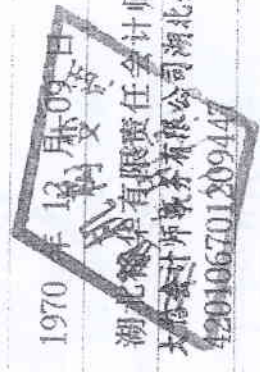 1970 年 12 月 09 日
湖北 有限责任会计师
大信会计师事务有限公司湖北分
420106701209447